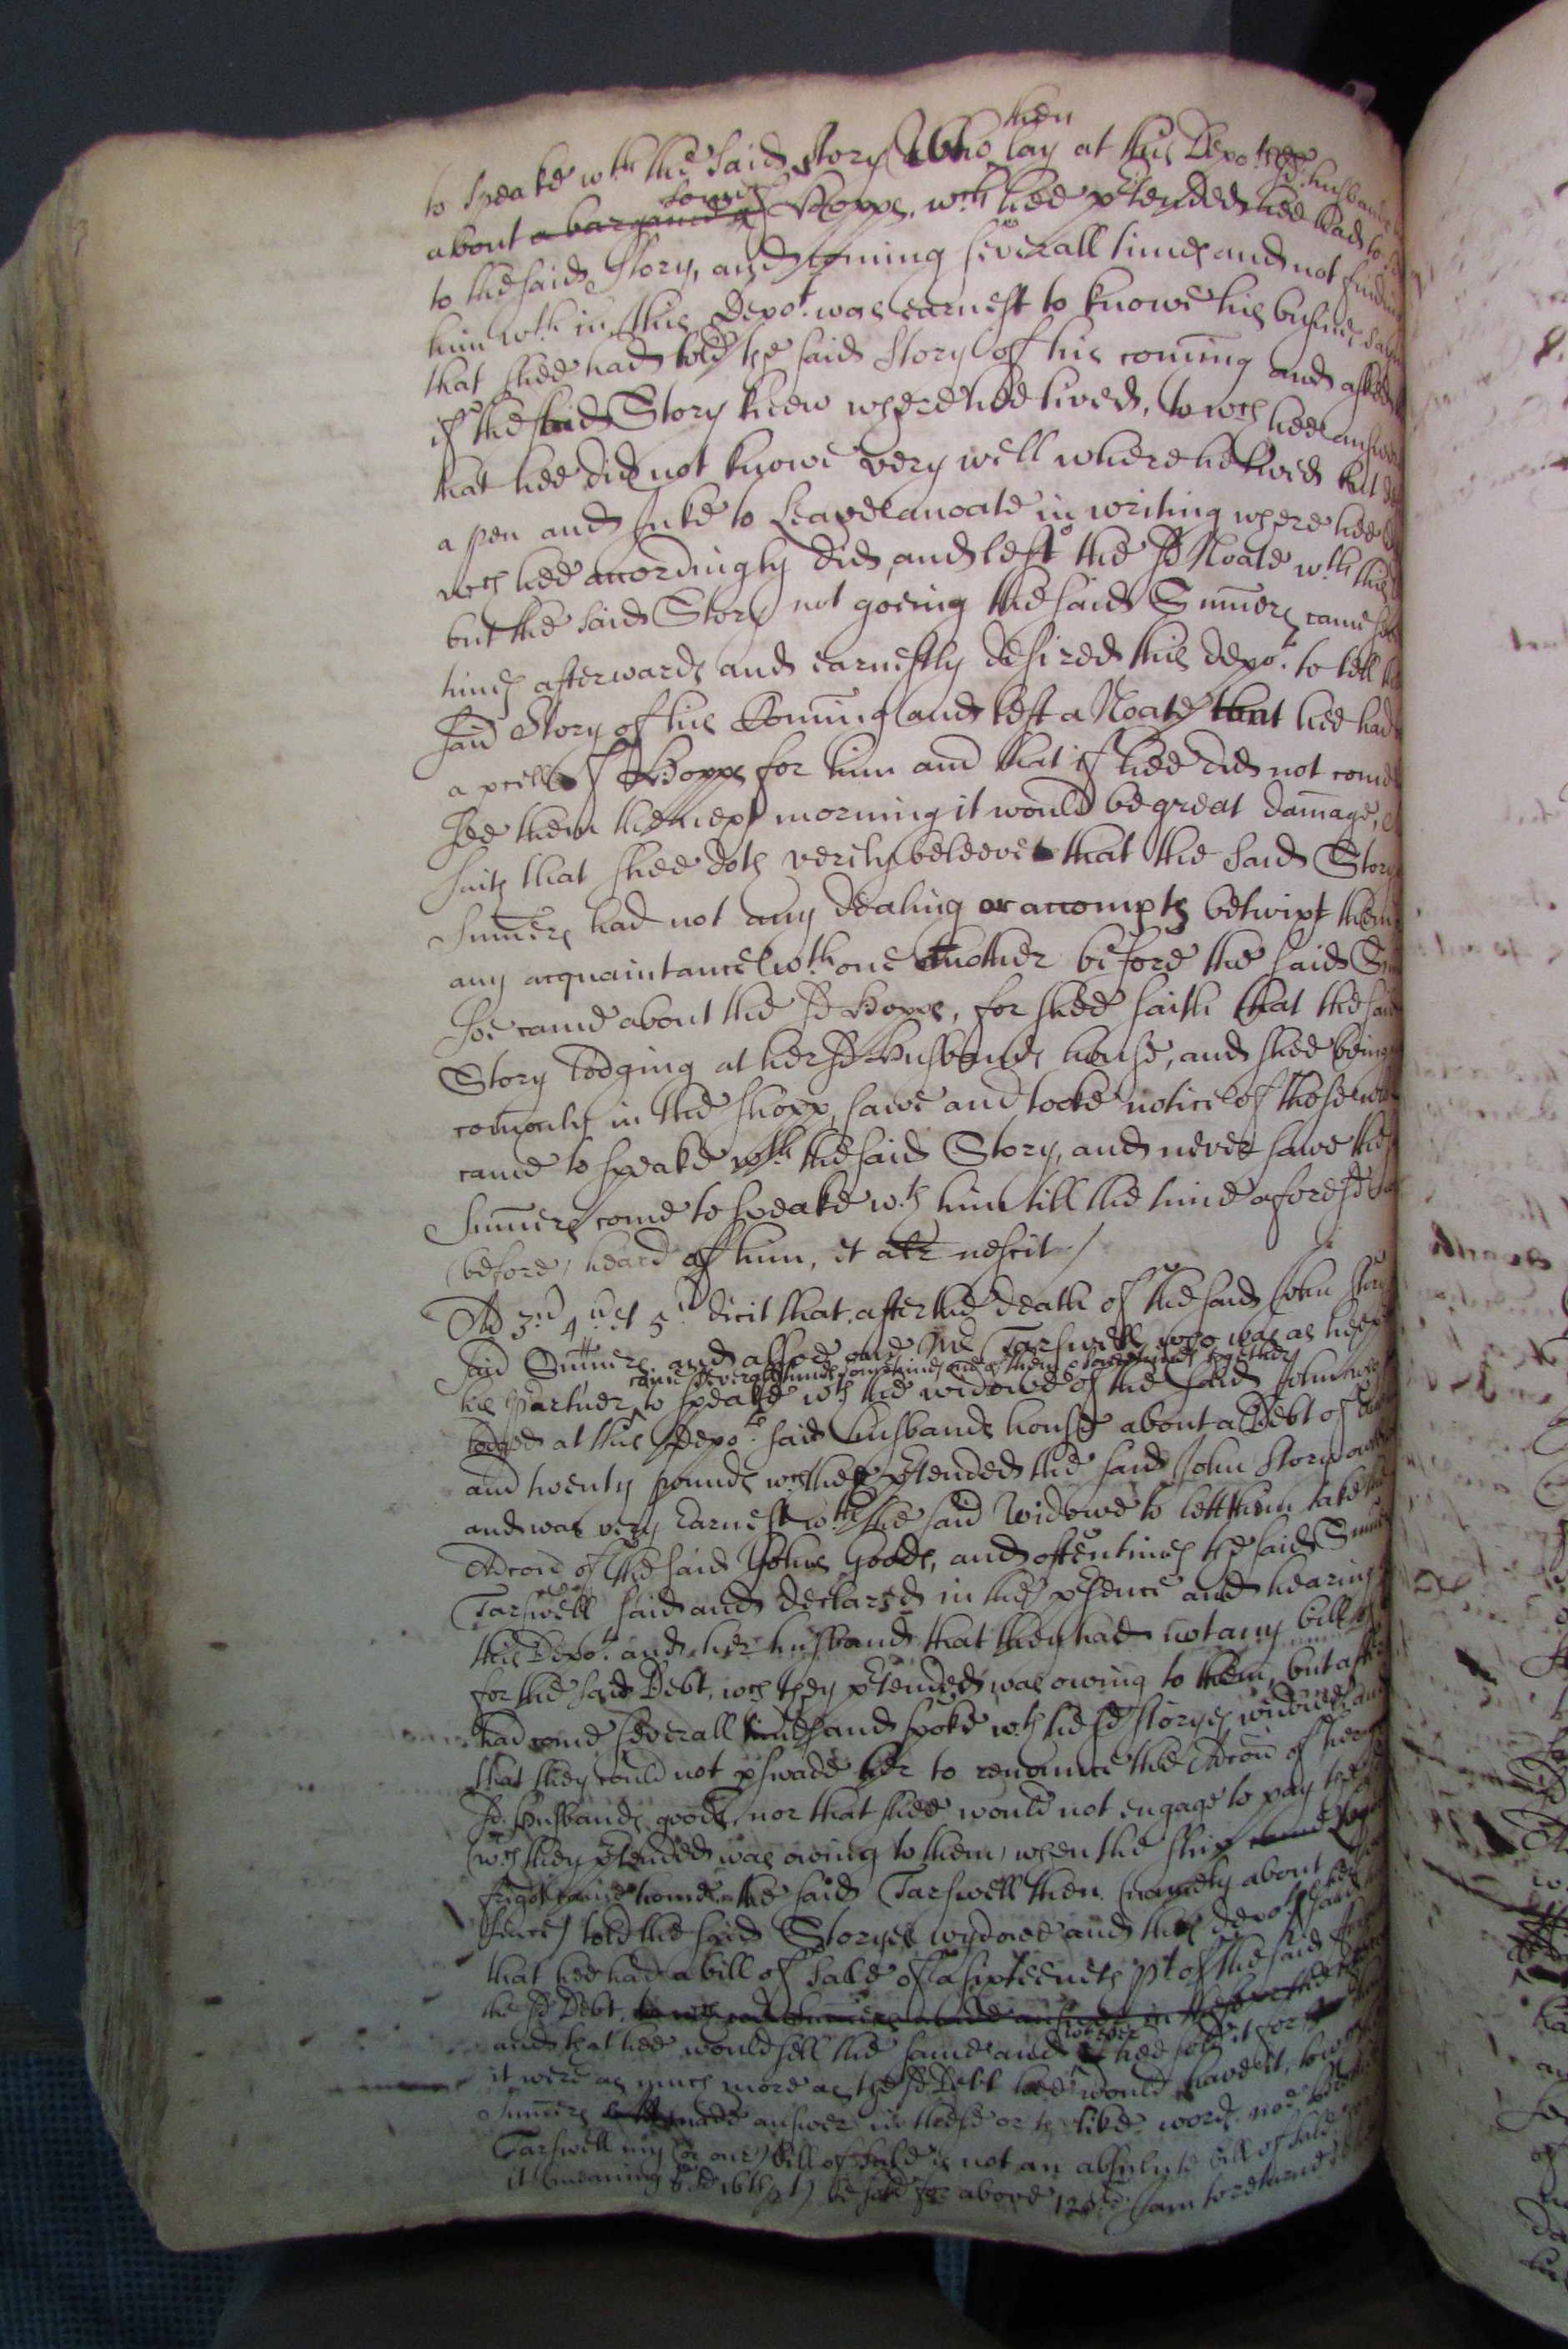 to speake wth the said Story who then lay at this Depo.ts sd husbands
about a bargaine of some Hopps, wch hee ptended hee had to
to the said Story, and coming severall times and not finding
him wth in, this Depot. was earnest to knowe his busines
that shee had told the said Story of his coming and asked
if the said Story knew where hee lived, to wch hee answered
that hee did not knowe very well where he lived but
a pen and Inke to Leave a noate in writing where hee
wch hee accordingly did, and left the sd Noate wth this
but the said Story not goeing the said Sumers came
times afterwards and earnestly desired this depo.t to tell
said Story of his Coming and left a Noate that hee had
a pcell of Hopps for him and that if hee did not come
see them the next morning it would be great damage,
saith that shee doth verily beleeve that the said Story
Sumers had not any dealing or accompts betwixt them
any acquaintance wth one another before the said
soe came about the sd Hopps, for shee saith that the said
Story lodging at her sd Husbands house, and shee being
comonly in the shopp, sawe and tooke notice of those
came to speake wth the said Story, and never sawe the
Sumers come to speake wth him till the time aforesd
(before) heard of him, et altr nescit /
Ad 3.u 4.u et 5.u dicit that after the death of the said John Story
said Sumers and allsoe one Mr Tarswell who was as hee
came severall times sometimes one of them & sometimes together
his Partner to speake wth the widowe of the said John
lodged at this Depo.ts said husbands house about a Debt of
and twenty pounds wch they ptended the said John Story
and was very Earnest wth the said Widowe to lett them take the
Adcon of the said Johns Goods, and oftentimes the said
Tarswell said and declared in the psence and hearing
this Depo.t and her husband that they had not any bill
for the said Debt, wch they ptended was owing to them, but
had come severall times and spoke wth the sd Storyes widowe
that they could not pswade her to renounce the Adcon of her
sd husbands goods, nor that shee would not engage to pay the
(wch they ptended was owing to them) when the ship
frigot came home, the said Tarswell then (namely about
since) told the said Storyes wydowe and this depo.t
that hee had a bill of sale of a sixteenth pt of the said
the sd Debt,
and that hee would sell the same and hee sold it for
it were as much more as the sd Debt hee would have it,
Sumers made answer in these or the like words
Tarswell my (or our) bill of sale is not an absolute bill of sale
it (meaning the sd 16th pt) be sold for above 120 li I am to returne